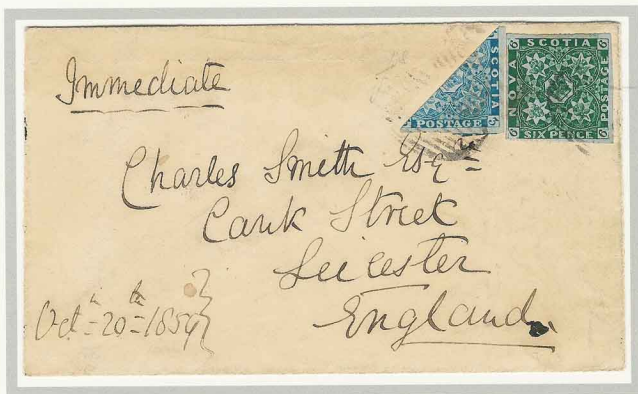 Immediate
SCOTIA
POSTAGE
NOVA SCOTIA POSTAGE SIX PENCE
6 6 6 6
Charles Smith Esq=
Cank Street
Leicester
England.
Oct= 20th= 1859